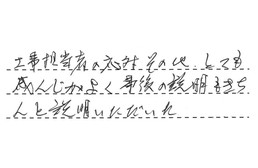 工事担当者の応対その他とても
感んじがよく事後の説明もきち
んと説明いただいた